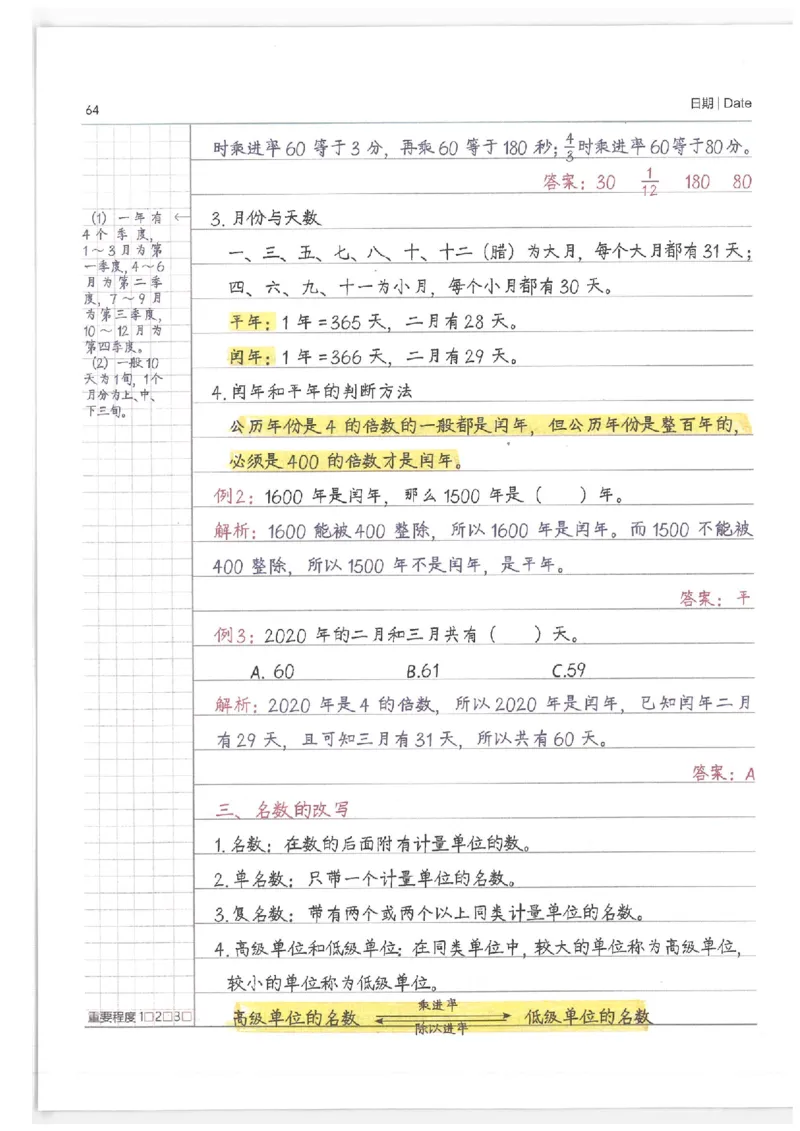 64
日期 | Date
时乘进率60等于3分，再乘60等于180秒；4/3时乘进率60等于80分。
答案：30 1/12 180 80
(1) 一年有
4个季度，
1～3月为第
一季度，4～6
月为第二季
度，7～9月
为第三季度，
10～12月为
第四季度。
(2) 一般10
天为1旬，1个
月分为上、中、
下三旬。
← 3.月份与天数
一、三、五、七、八、十、十二（腊）为大月，每个大月都有31天；
四、六、九、十一为小月，每个小月都有30天。
平年：1年=365天，二月有28天。
闰年：1年=366天，二月有29天。
4.闰年和平年的判断方法
公历年份是4的倍数的一般都是闰年，但公历年份是整百年的，
必须是400的倍数才是闰年。
例2：1600年是闰年，那么1500年是（　　）年。
解析：1600能被400整除，所以1600年是闰年。而1500不能被
400整除，所以1500年不是闰年，是平年。
答案：平
例3：2020年的二月和三月共有（　　）天。
A. 60 B.61 C.59
解析：2020年是4的倍数，所以2020年是闰年，已知闰年二月
有29天，且可知三月有31天，所以共有60天。
答案：A
三、名数的改写
1.名数：在数的后面附有计量单位的数。
2.单名数：只带一个计量单位的名数。
3.复名数：带有两个或两个以上同类计量单位的名数。
4.高级单位和低级单位：在同类单位中，较大的单位称为高级单位，
较小的单位称为低级单位。
乘进率
高级单位的名数 ⇌ 低级单位的名数
除以进率
重要程度1□2□3□